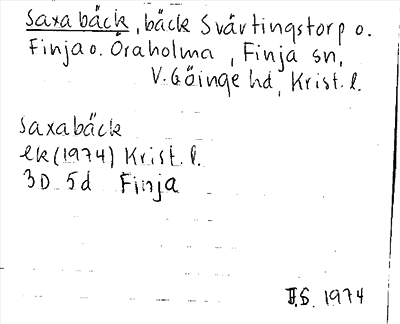 Saxabäck, bäck Svärtingstorp o.
Finja o. Öraholma, Finja sn,
V. Göinge hd, Krist. l.
Saxabäck
ek (1974) Krist. l.
3D 5d Finja
1974